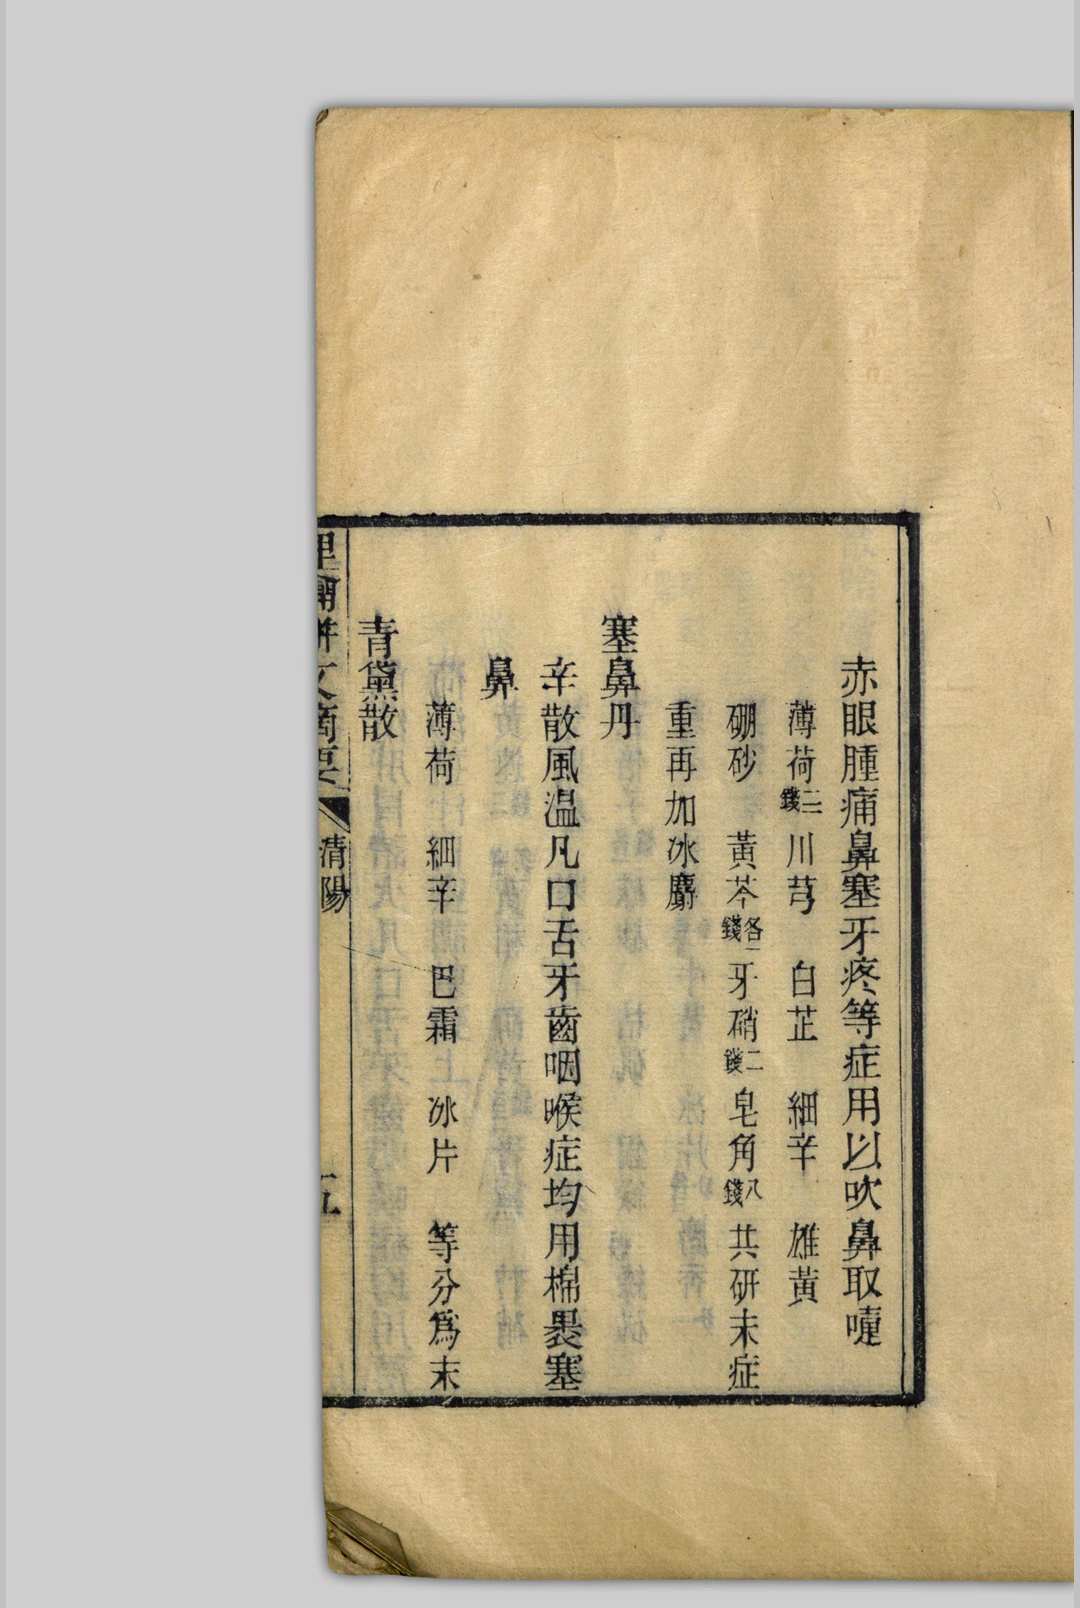 赤眼腫痛鼻塞牙疼等症用以吹鼻取嚏
薄荷二錢川芎 白芷 細辛 雄黃
硼砂 黃芩各一錢牙硝二錢皂角八錢共研末症
重再加冰麝
塞鼻丹
辛散風温凡口舌牙齒咽喉症均用棉褁塞
鼻
薄荷 細辛 巴霜 冰片 等分爲末
青黛散
清陽
五